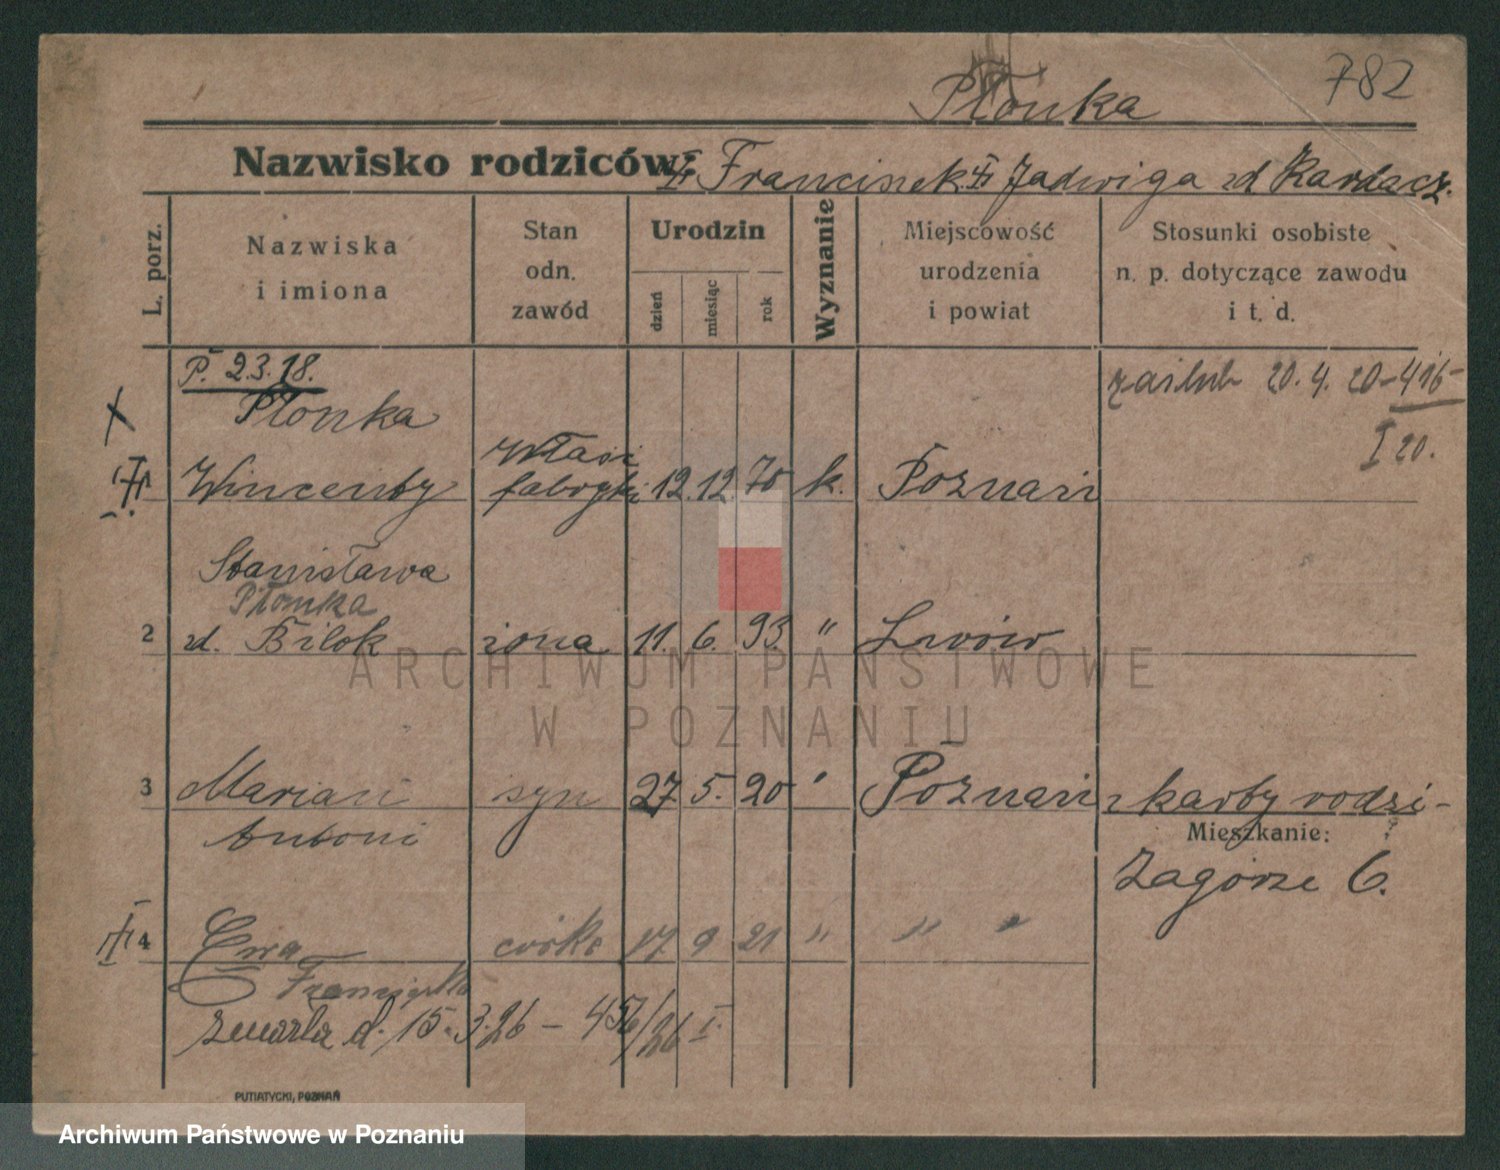 782
Płonka
Nazwisko rodziców: Franciszek Jadwiga zd Kardacz.
L. porz.
Nazwiska i imiona
Stan odn. zawód
Urodzin
dzień
miesiąc
rok
Wyznanie
Miejscowość urodzenia i powiat
Stosunki osobiste n. p. dotyczące zawodu i t. d.
P. 23.18.
zaślub 20. 4. 20 - 416 -
Płonka
I 20.
Wincenty właśc fabryki 12. 12. 70 k. Poznań
Stanisława
Płonka
2 zd. Bilok żona 11. 6. 93. " Lwów
3 Marian syn 27 5. 20 " Poznań z karty rodzi-
Antoni
Mieszkanie:
Zagórze 6.
4 Ewa córka 17 9 21 " " "
Franciszka
zmarła d. 15. 3. 26 - 456/26 I.
PUTIATYCKI, POZNAŃ
ARCHIWUM PAŃSTWOWE
W POZNANIU
Archiwum Państwowe w Poznaniu